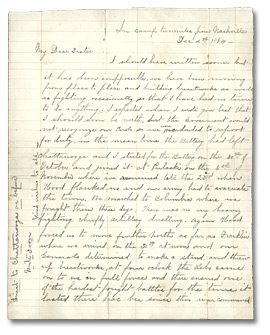 In camp two miles from Nashville
Dec 2nd 1864
My Dear Sister
I should have written sooner but
it has been impossible, we have been moving
from place to place and building breastworks as well
as fighting occasionally so that I have had no time
to do anything, I expected when I wrote you last that
I should soon be north, but the Government would
not recognize our and we were ordered to report
for duty, in the mean time the Battery had left
Chattanooga and I started for the Battery on the 30th of
October and joined it at Pulaski on the 5th of
November where we remained till the 23rd when
Hood flanked us and our army had to evacuate
the town. We marched to Columbia where we
fought them three days. There was no very heavy
fighting chiefly artillery dueling. Again Hood
forced us to move further North as far as Franklin
where we arrived on the 30th at noon and our
Generals determined to make a stand, and threw
up breastworks, at four oclock the Rebs carried
on to us in full force and there ensued one
of the hardest fought battles for the time it
lasted there has been since the war commenced
Direct to Chattanooga as before
write soon